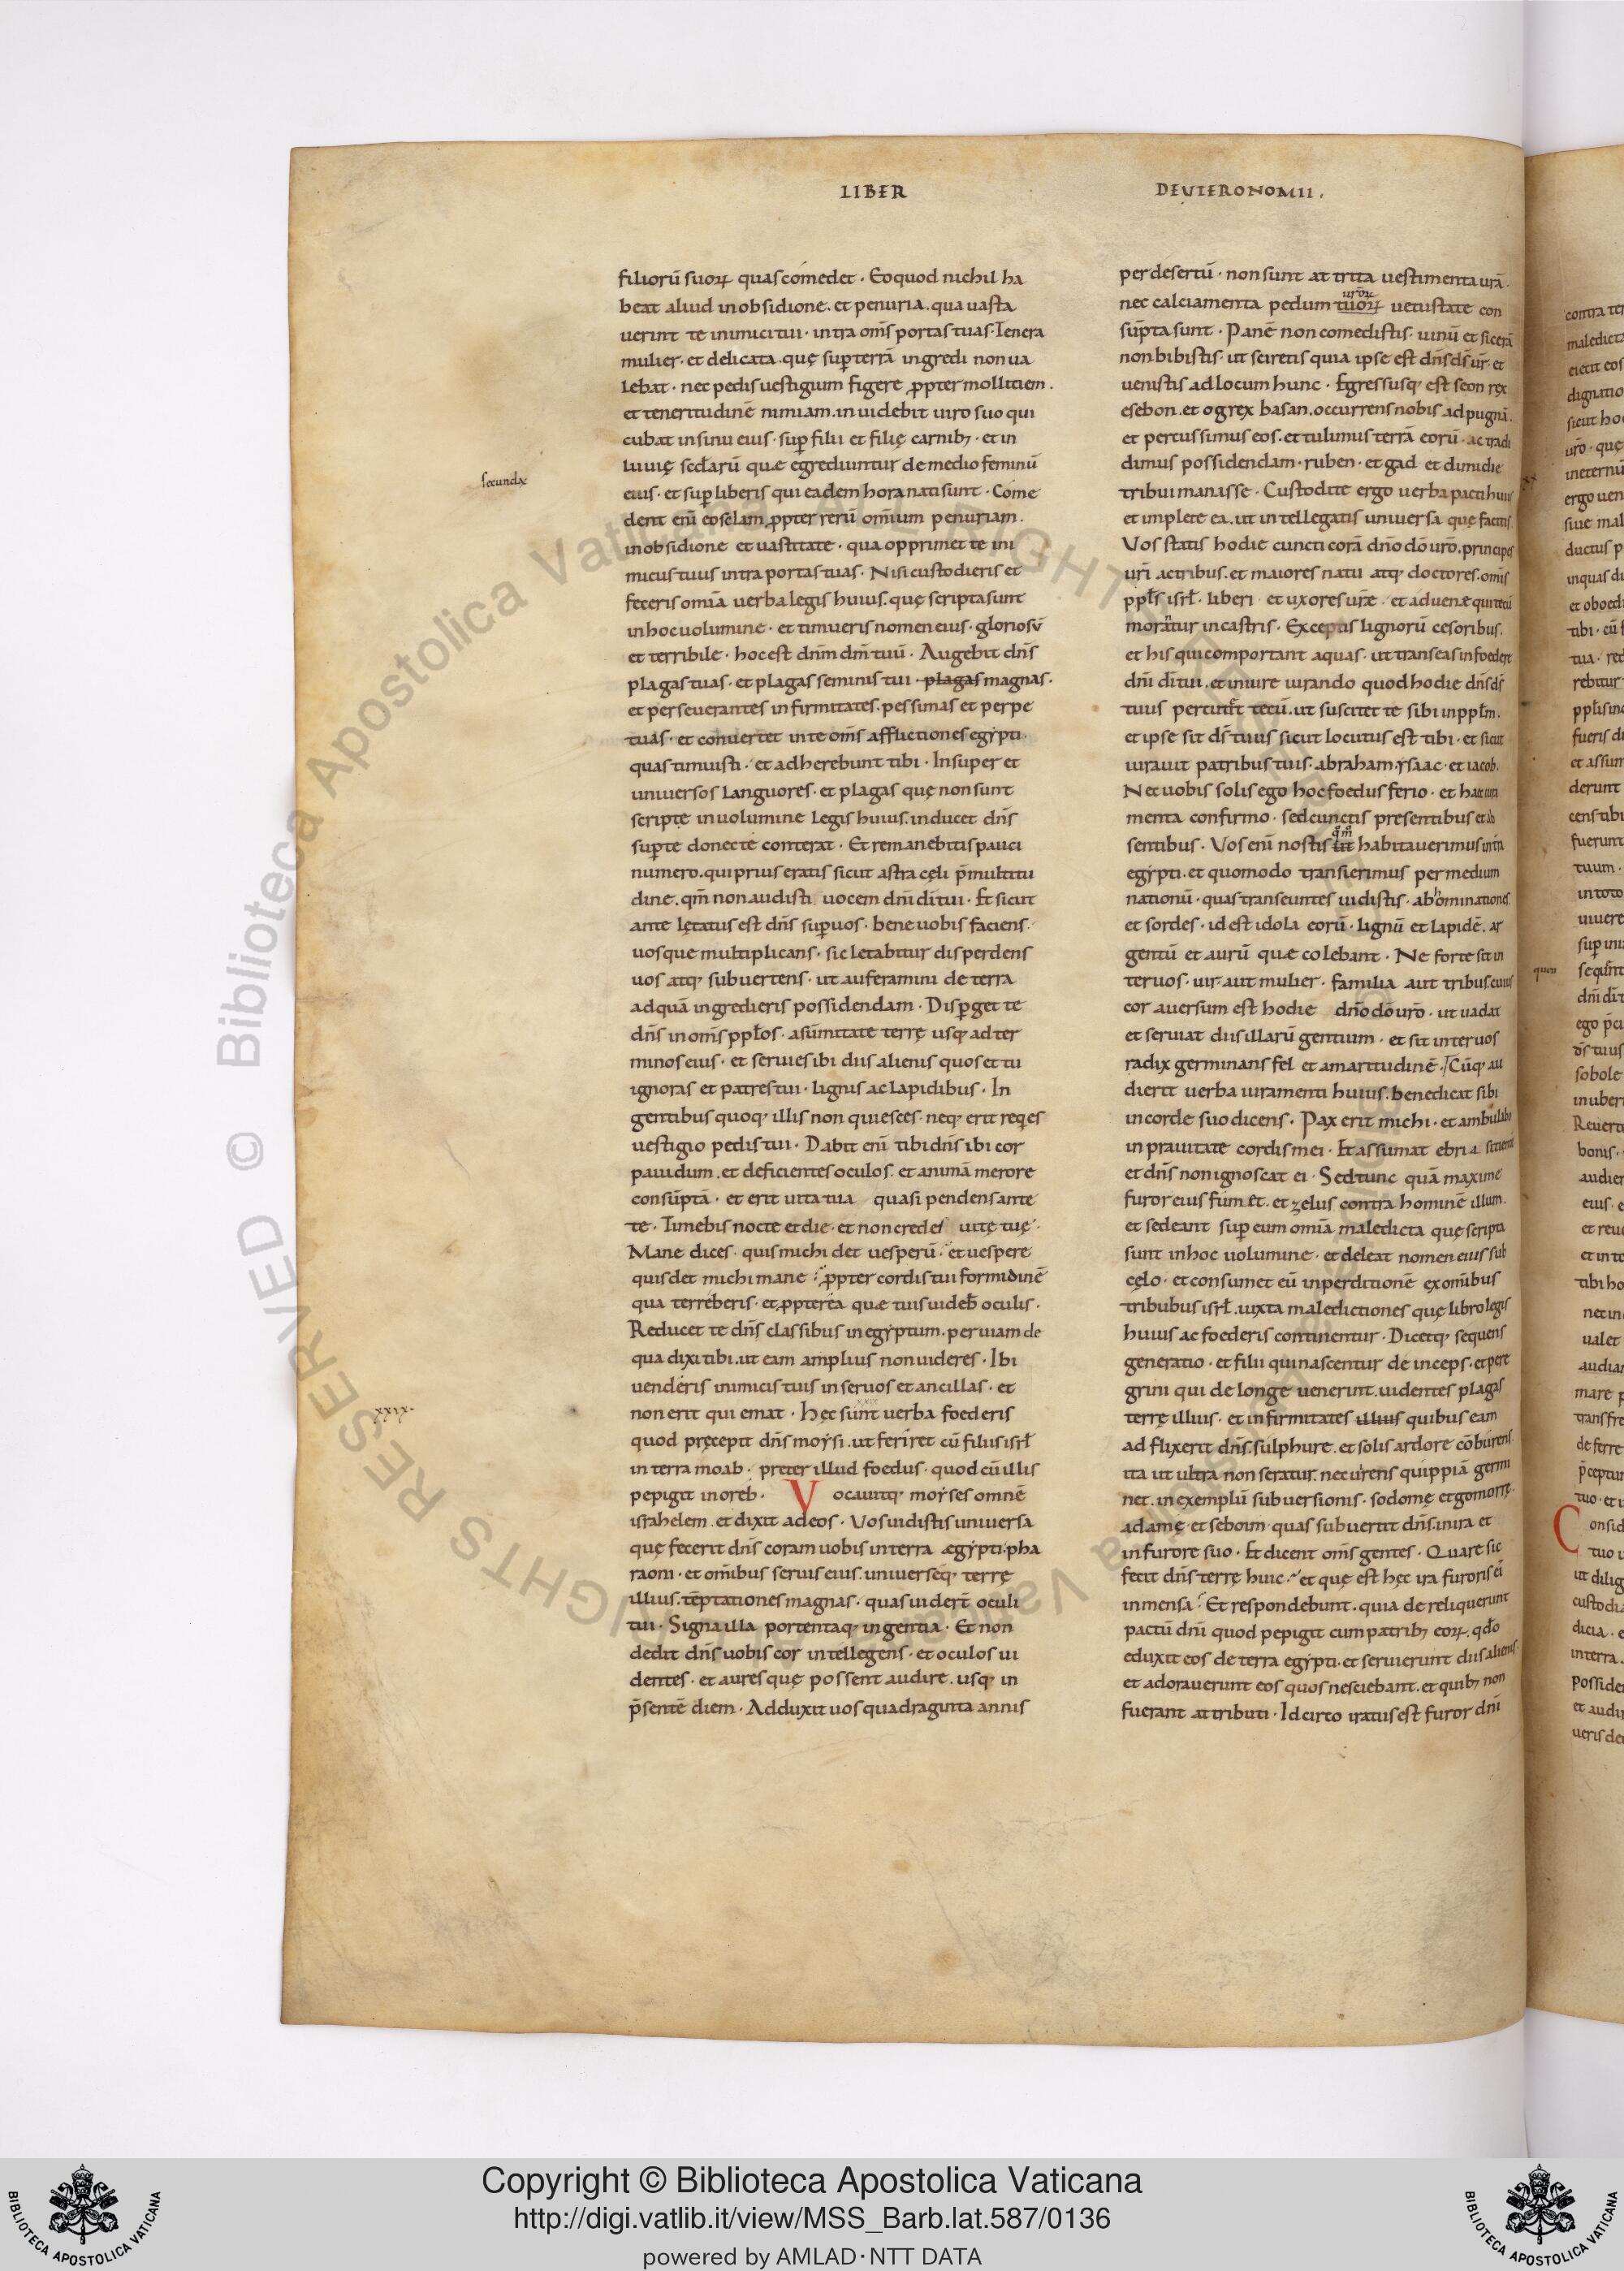 LIBER DEUTERONOMII.
filiorū suoꝝ quas comedet · Eo quod nichil ha
beat aliud in obsidione. et penuria. qua uasta
uerint te inimici tui · intra om̄s portas tuas · Tenera
mulier · et delicata. quę sup terrā ingredi non ua
lebat · nec pedis uestigium figere ꝓpter mollitiem .
et teneritudinē nimiam. inuidebit uiro suo qui
cubat in sinu eius · sup filii et filię carnibꝫ · et in
luuię sedarū quæ egrediuntur de medio feminū
secundæ
eius · et sup liberis qui eadem hora nati sunt · Come
dent eni eos clam ꝓpter rerū omium penuriam .
in obsidione et uastitate · qua opprimet te ini
micus tuus intra portas tuas · Nisi custodieris et
feceris omīa uerba legis huius. quę scripta sunt
in hoc uolumine · et timueris nomen eius · gloriosū
et terribile · hoc est dnm dm tuū · Augebit dn̄s
plagas tuas · et plagas seminis tui · plagas magnas ·
et perseuerantes infirmitates. pessimas et perpe
tuas · et conuertet in te om̄s afflictiones egypti ·
quas timuisti · et adherebunt tibi · Insuper et
uniuersos languores · et plagas quę non sunt
scriptę in uolumine legis huius. inducet dn̄s
sup te donec te conterat · Et remanebitis pauci
numero. qui prius eratis sicut astra cęli p̄ multitu
dine. qm̄ non audisti uocem dni di tui · Et sicut
ante lętatus est dn̄s sup uos · bene uobis faciens ·
uosque multiplicans · sic letabitur disperdens
uos atqꝫ subuertens · ut auferamini de terra
ad quā ingredieris possidendam · Disperget te
dn̄s in om̄s pplos · a sūmitate terrę usqꝫ ad ter
minos eius · et seruies ibi diis alienis quos et tu
ignoras et patres tui · lignis ac lapidibus · In
gentibus quoqꝫ illis non quiesces · neqꝫ erit reqes
uestigio pedis tui · Dabit eni tibi dn̄s ibi cor
pauidum. et deficientes oculos. et animā merore
consūptā · et erit uita tua quasi pendens ante
te · Timebis nocte et die · et non credes uitę tuę ·
Mane dices · quis michi det uesperū · et uespere
quis det michi mane · ꝓpter cordis tui formidinē
qua terreberis · et ꝓpterea quæ tuis uideb oculis ·
Reducet te dn̄s classibus in egyptum. per uiam de
qua dixi tibi. ut eam amplius non uideres · Ibi
uenderis inimicis tuis in seruos et ancillas · et
xxix.
non erit qui emat · Hęc sunt uerba foederis
quod pręcepit dn̄s moysi. ut feriret cū filiis isrl
in terra moab · preter illud foedus · quod cū illis
pepigit in oreb · Vocauitqꝫ moyses omnē
israhelem. et dixit ad eos · Vos uidistis uniuersa
quę fecerit dn̄s coram uobis in terra ægypti · pha
raoni · et omībus seruis eius. uniuersęqꝫ terrę
illius. tēptationes magnas · quas uidert̄ oculi
tui · Signa illa portentaqꝫ ingentia · Et non
dedit dn̄s uobis cor intellegens · et oculos ui
dentes · et aures quę possent audire. usqꝫ in
p̄sentē diem · Adduxit uos quadraginta annis
per desertū · non sunt attrita uestimenta urā ·
uroꝝ
nec calciamenta pedum tuoꝝ uetustate con
sūpta sunt · Panē non comedistis · uinū et sicerā
non bibistis · ut sciretis quia ipse est dn̄s ds ur · et
uenistis ad locum hunc · Egressusqꝫ est seon rex
esebon. et og rex basan. occurrens nobis ad pugnā ·
et percussimus eos. et tulimus terrā eorū · ac tradi
dimus possidendam · ruben · et gad et dimidie
tribui manasse · Custodite ergo uerba pacti huius
et implete ea. ut intellegatis uniuersa quę facitis.
Vos statis hodie cuncti corā dn̄o dō uro. principes
uri ac tribus. et maiores natu atqꝫ doctores. om̄s
ppls isrl · liberi et uxores uræ · et aduenæ qui tecū
morātur in castris · Exceptis lignorū cesoribus.
et his qui comportant aquas · ut transeas in foedere
dni di tui. et in iure iurando quod hodie dn̄s ds
tuus percutit tecū. ut suscitet te sibi in pplm.
et ipse sit ds tuus sicut locutus est tibi · et sicut
iurauit patribus tuis · abraham · ysaac · et iacob.
Nec uobis solis ego hoc foedus ferio · et hæc iura
menta confirmo · sed cunctis presentibus et ab
qm̄
sentibus · Vos eni nostis ut habitauerimus in tra
egypti. et quomodo transierimus per medium
nationū · quas transeuntes uidistis · abhominationes
et sordes · id est idola eorū · lignū et lapidē. ar
gentū et aurū quæ colebant · Ne forte sit in
ter uos · uir aut mulier · familia aut tribus. cuius
cor auersum est hodie dn̄o dō uro · ut uadat
et seruiat diis illarū gentium · et sit inter uos
radix germinans fel et amaritudinē · Cūqꝫ au
dierit uerba iuramenti huius. benedicat sibi
in corde suo dicens · Pax erit michi · et ambulabo
in prauitate cordis mei · Et assumat ebria sitientē
et dn̄s non ignoscat ei · Sed tunc quā maxime
furor eius fum et. et zelus contra hominē illum.
et sedeant sup eum omīa maledicta quę scripta
sunt in hoc uolumine · et deleat nomen eius sub
cęlo · et consumet eū in perditionē ex omībus
tribubus isrl. iuxta maledictiones quę libro legis
huius ac foederis continentur · Dicetqꝫ sequens
generatio · et filii qui nascentur deinceps · et pere
grini qui de longe uenerint. uidentes plagas
terrę illius · et infirmitates illius quibus eam
adflixerit dn̄s. sulphure. et solis ardore cōburens
ita ut ultra non seratur. nec uirens quippiā germi
net. in exemplū subuersionis · sodomę et gomorrę.
adamę et seboim quas subuertit dn̄s. in ira et
in furore suo · Et dicent om̄s gentes · Quare sic
fecit dn̄s terrę huic · et quę est hęc ira furoris ei
inmensa · Et respondebunt. quia dereliquerunt
pactū dni quod pepigit cum patribꝫ eoꝝ. qdo
eduxit eos de terra egypti. et seruierunt diis alienis
et adorauerunt eos quos nesciebant. et quibꝫ non
fuerant attributi · Idcirco iratus est furor dni
Copyright © Biblioteca Apostolica Vaticana
http://digi.vatlib.it/view/MSS_Barb.lat.587/0136
powered by AMLAD·NTT DATA
BIBLIOTECA APOSTOLICA VATICANA
BIBLIOTECA APOSTOLICA VATICANA